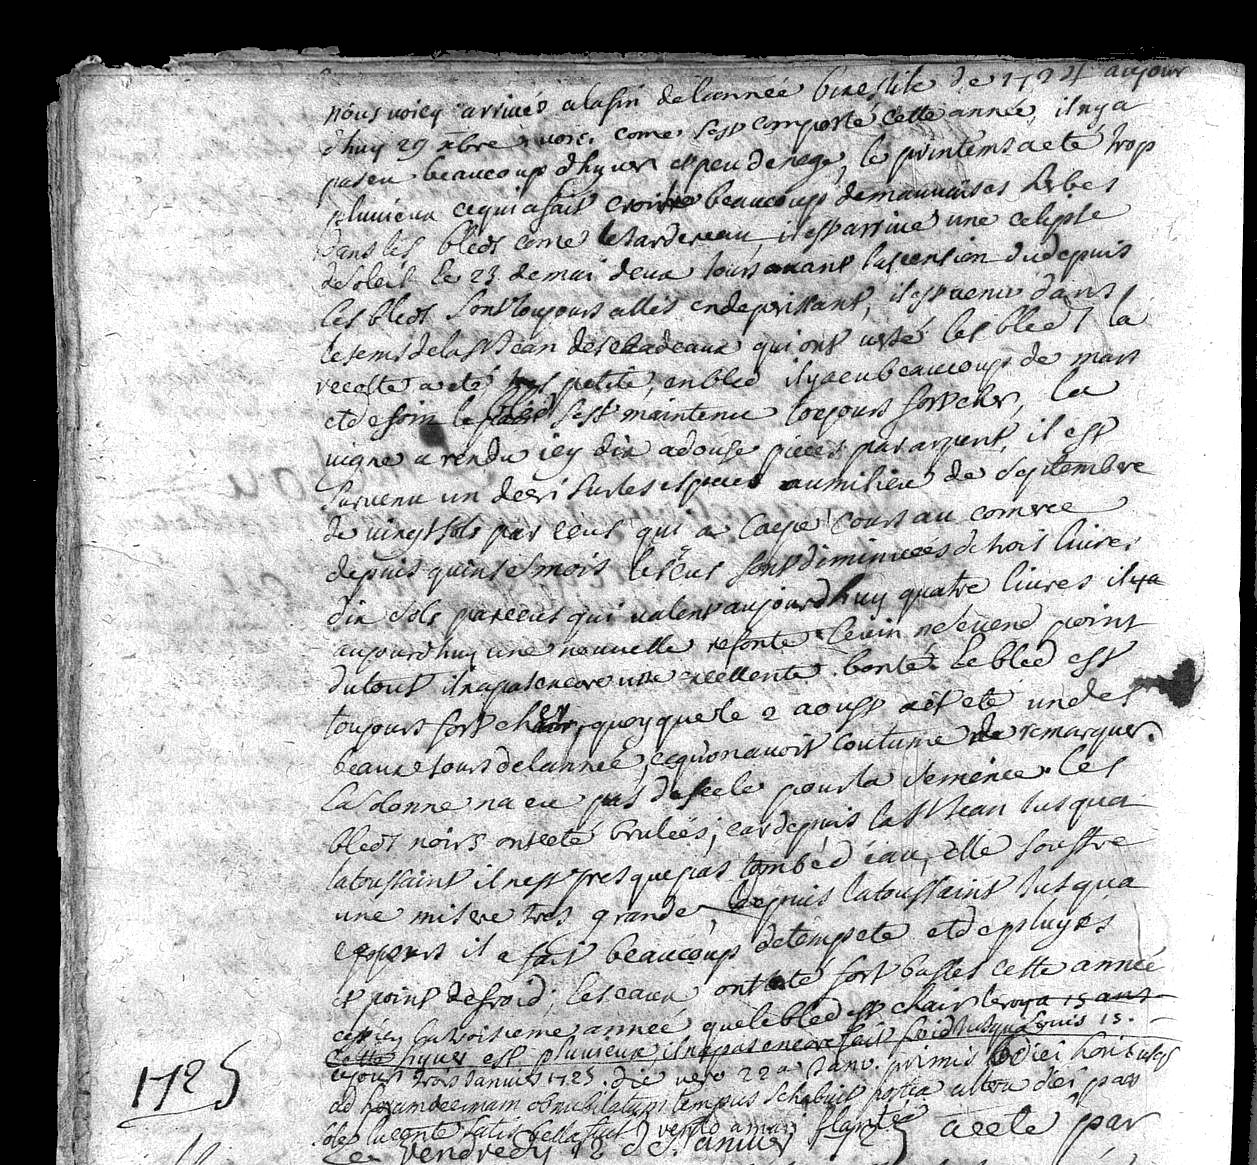 nous voicy arrivés a la fin de l'année bixestile de 1724 aujour
d'huy 29 xbre, voici come s'est comporté cette année, il n'y a
pas eu beaucoup d'hyver et peu de nege, le printems a eté trop
pluvieux ce qui a fait croitre beaucoup de mauvaises herbes
dans les bleds come le tardereau, il est arrivé une eclipse
de soleil le 23 de mai deux jours avant l'ascension du depuis
les bleds sont toujours allés en deperissant, il est venu dans
le tems de la St Jean des chadeaux qui ont usté les bleds la
recolte a eté petite, en bled il y a eu beaucoup de mars
et de foin le s'est maintenu toujours fort cher, la
vigne a rendu icy dix a douse pieces par arpent, il est
survenu un decri sur les especes au milieu de septembre
de vingt sols par ecus qui a cours au comree
depuis quinse mois les ecus sont diminuées de trois livres
dix sols par ecus qui valent aujourd'huy quatre livres il y a
aujourd'huy une nouvelle refonte le vin ne se vend point
du tout il n'a pas encore une excellente bonté. Le bled est
toujours fort cher, quoy que le 2 aoust ait eté un des
beaux jours de l'année, ce qu'on avoit coutume de remarquer.
la solonne n'a eu pas de seele pour la semence. les
bleds noirs ont eté brulées; car depuis la St Jean jusqu'a
la toussaint il n'est presque pas tombé d'eau, elle souffre
une misere tres grande, depuis la toussaint jusqu'a
il a fait beaucoup de tempete et de pluyes
et point de froid; les eaux ont eté fort basses cette année
cest icy la troisieme année que le bled est chair le roy a 15 ans
cette hyver est pluvieux il n'a pas encore fait froid jusqu'a Louis 15.
ce jour trois janvier 1725. die vero 22a jano. primis diei horis usq
ad decimam obnubilatum tempus se habuit postea ultra diei pars
sole lucente satis bella fuit vento amari flante
1725
Le vendredy 12 de janvier a eté par